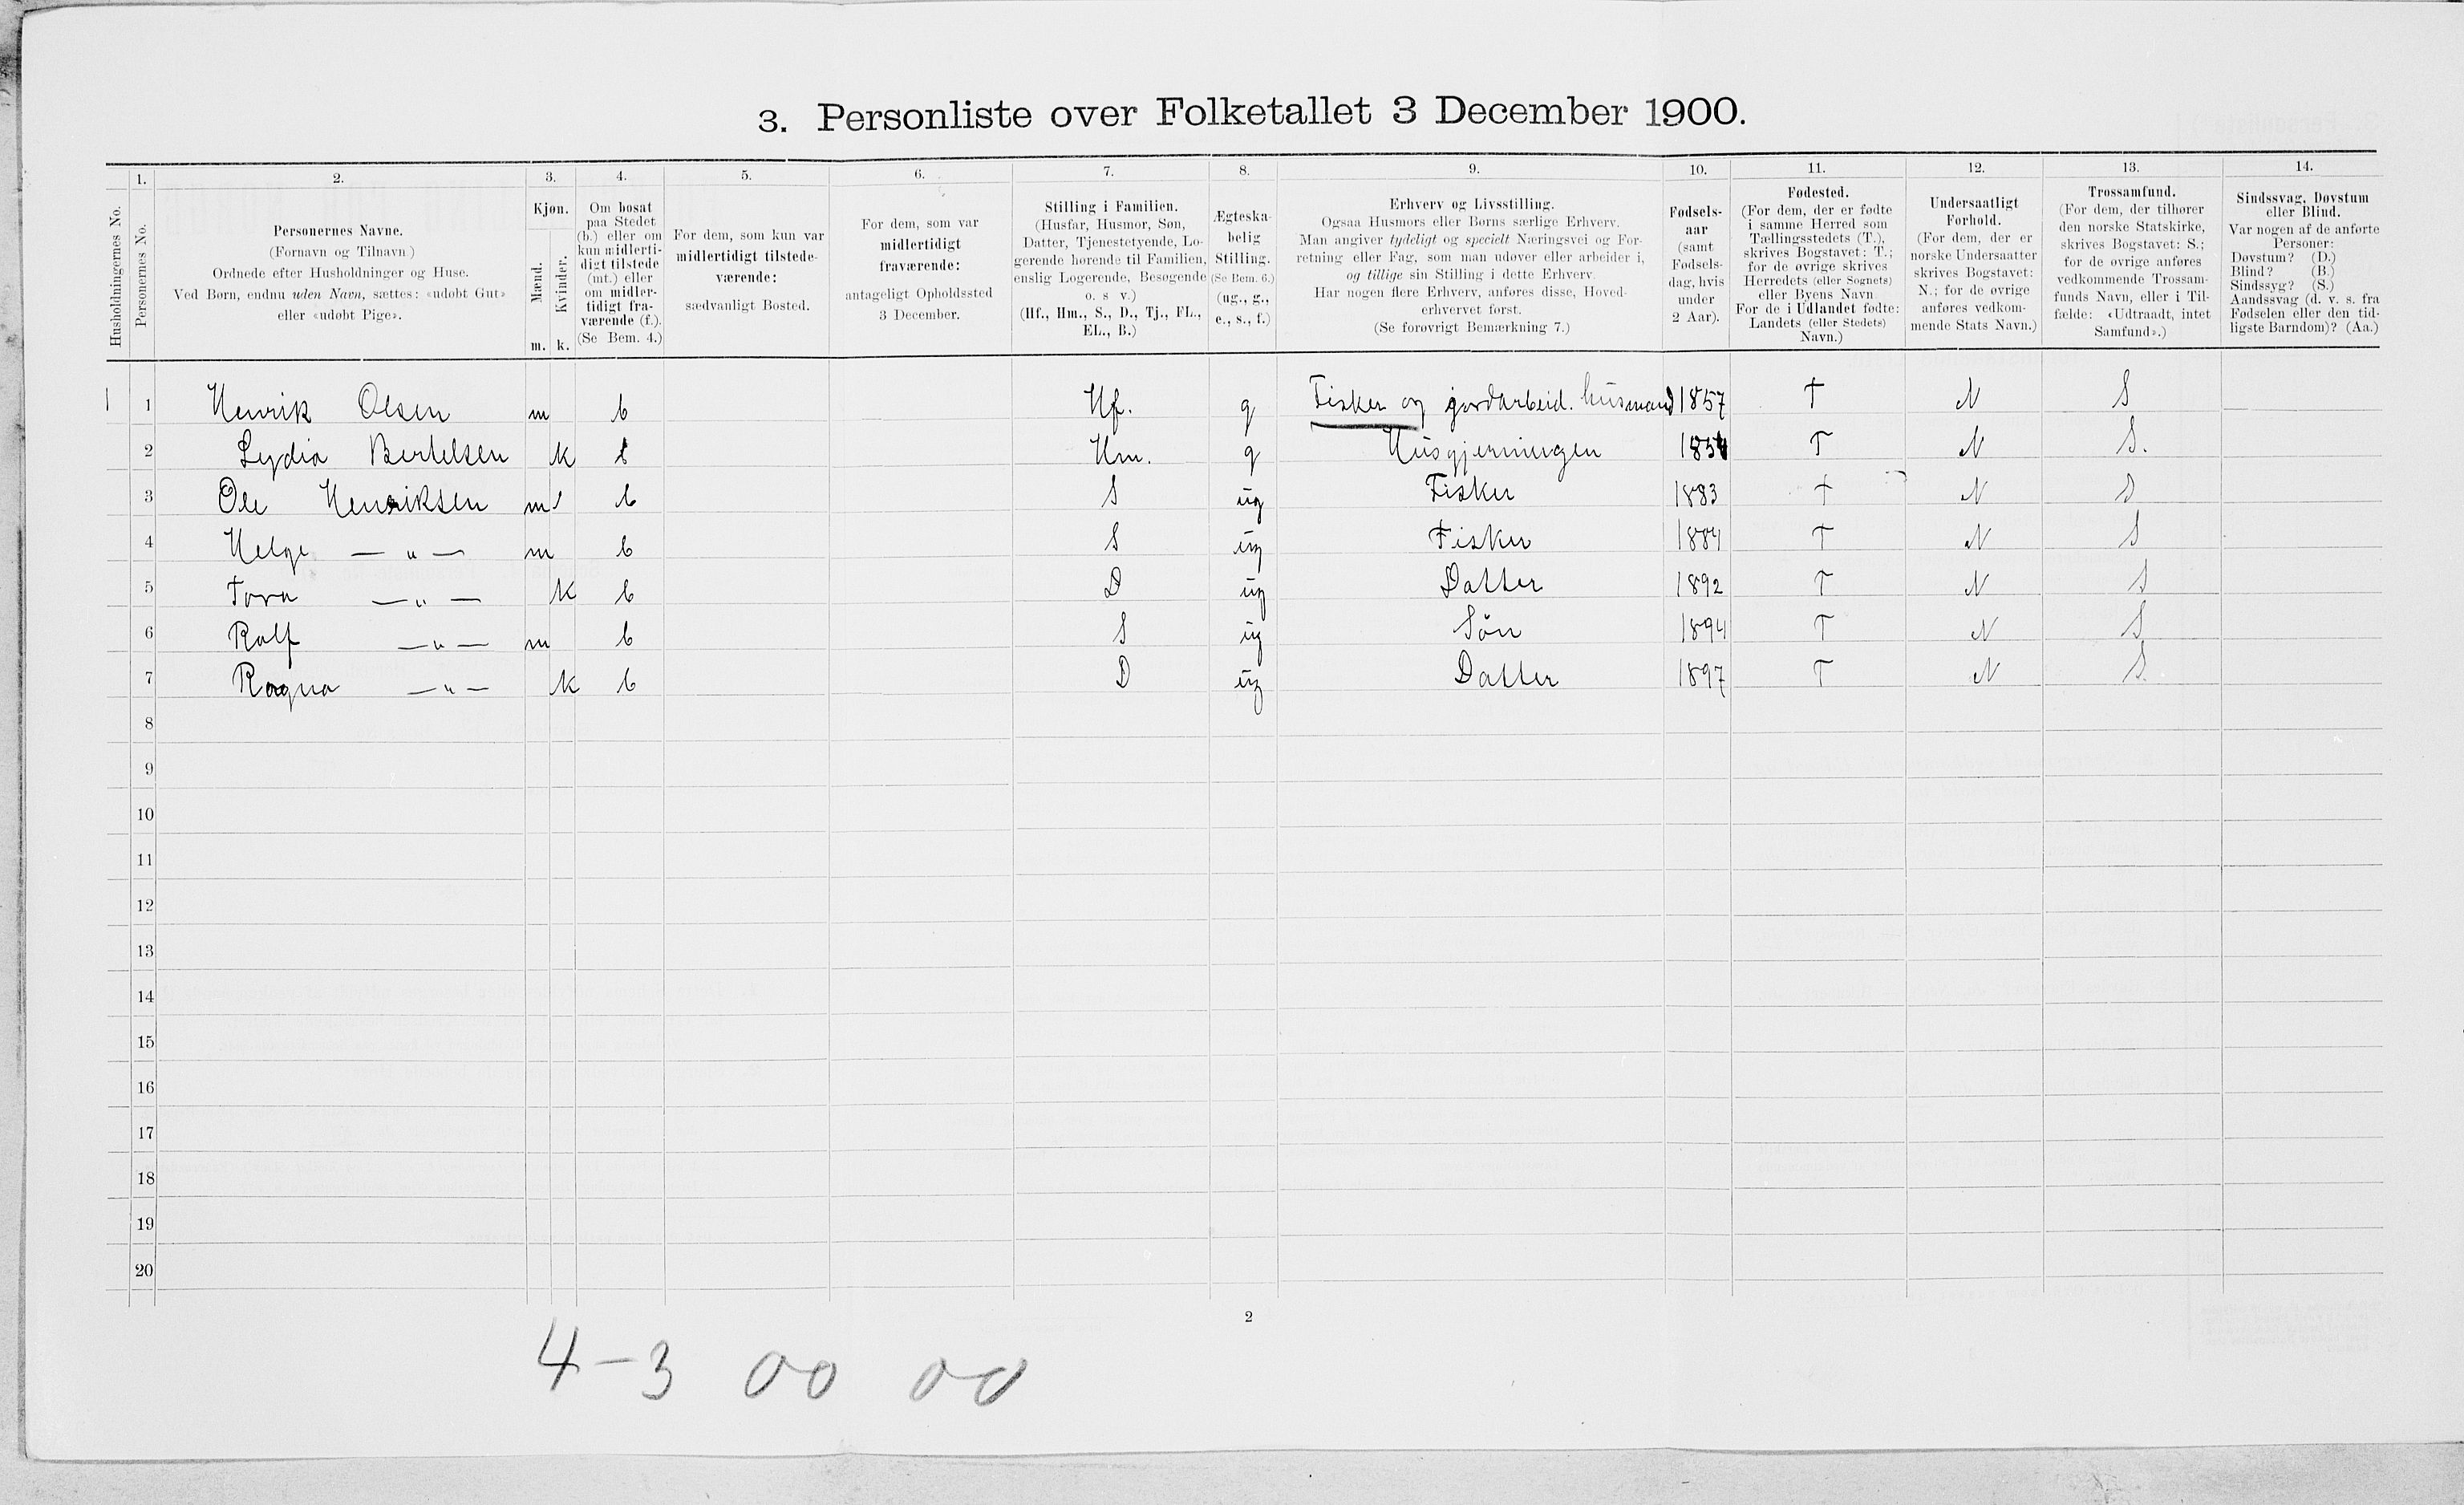 3. Personliste over Folketallet 3 December 1900.
Husholdningernes No.
1.
Personernes No.
2.
Personernes Navne.
(Fornavn og Tilnavn)
Ordnede efter Husholdninger og Huse.
Ved Børn, endnu uden Navn, sættes: «udøbt Gut»
eller «udøbt Pige».
3.
Kjøn.
Mænd.
Kvinder.
m. k.
4.
Om bosat
paa Stedet
(b.) eller om
kun midlerti-
digt tilstede
(mt.) eller
om midler-
tidigt fra-
værende (f.).
(Se Bem. 4.)
5.
For dem, som kun var
midlertidigt tilstede-
værende:
sædvanligt Bosted.
6.
For dem, som var
midlertidigt
fraværende:
antageligt Opholdssted
3 December.
7.
Stilling i Familien.
(Husfar, Husmor, Søn,
Datter, Tjenestetyende, Lo-
gerende hørende til Familien,
enslig Logerende, Besøgende
o. s v.)
(Hf., Hm., S., D., Tj., FL.,
EL., B.)
8.
Ægteska-
belig
Stilling.
(Se Bem. 6.)
(ug., g.,
e., s., f.)
9.
Erhverv og Livsstilling.
Ogsaa Husmors eller Børns særlige Erhverv.
Man angiver tydeligt og specielt Næringsvei og For-
retning eller Fag, som man udøver eller arbeider i,
og tillige sin Stilling i dette Erhverv.
Har nogen flere Erhverv, anføres disse, Hoved-
erhvervet først.
(Se forøvrigt Bemærkning 7.)
10.
Fødsels-
aar
(samt
Fødsels-
dag, hvis
under
2 Aar).
11.
Fødested.
(For dem, der er fødte
i samme Herred som
Tællingsstedets (T.),
skrives Bogstavet: T.;
for de øvrige skrives
Herredets (eller Sognets)
eller Byens Navn
For de i Udlandet fødte:
Landets (eller Stedets)
Navn.)
12.
Undersaatligt
Forhold.
(For dem, der er
norske Undersaatter
skrives Bogstavet:
N.; for de øvrige
anføres vedkom-
mende Stats Navn.)
13.
Trossamfund.
(For dem, der tilhører
den norske Statskirke,
skrives Bogstavet: S.;
for de øvrige anføres
vedkommende Trossam-
funds Navn, eller i Til-
fælde: «Udtraadt, intet
Samfund».)
14.
Sindssvag, Døvstum
eller Blind.
Var nogen af de anførte
Personer:
Døvstum? (D.)
Blind? (B.)
Sindssyg? (S.)
Aandssvag (d. v. s. fra
Fødselen eller den tid-
ligste Barndom)? (Aa.)
1 1 Henrik Olsen m b Hf. g Fisker og jordarbeid. husmand 1857 T N S
2 Lydia Bertelsen k b Hm. g Husgjerningen 1854 T N S.
3 Ole Henriksen m b S ug Fisker 1883 T N S
4 Helge — " — m b S ug Fisker 1884 T N S
5 Tora — " — k b D ug Datter 1892 T N S
6 Rolf — " — m b S ug Søn 1894 T N S
7 Ragna — " — k b D ug Datter 1897 T N S
8
9
10
11
12
13
14
15
16
17
18
19
20
2
4 – 3 00 00